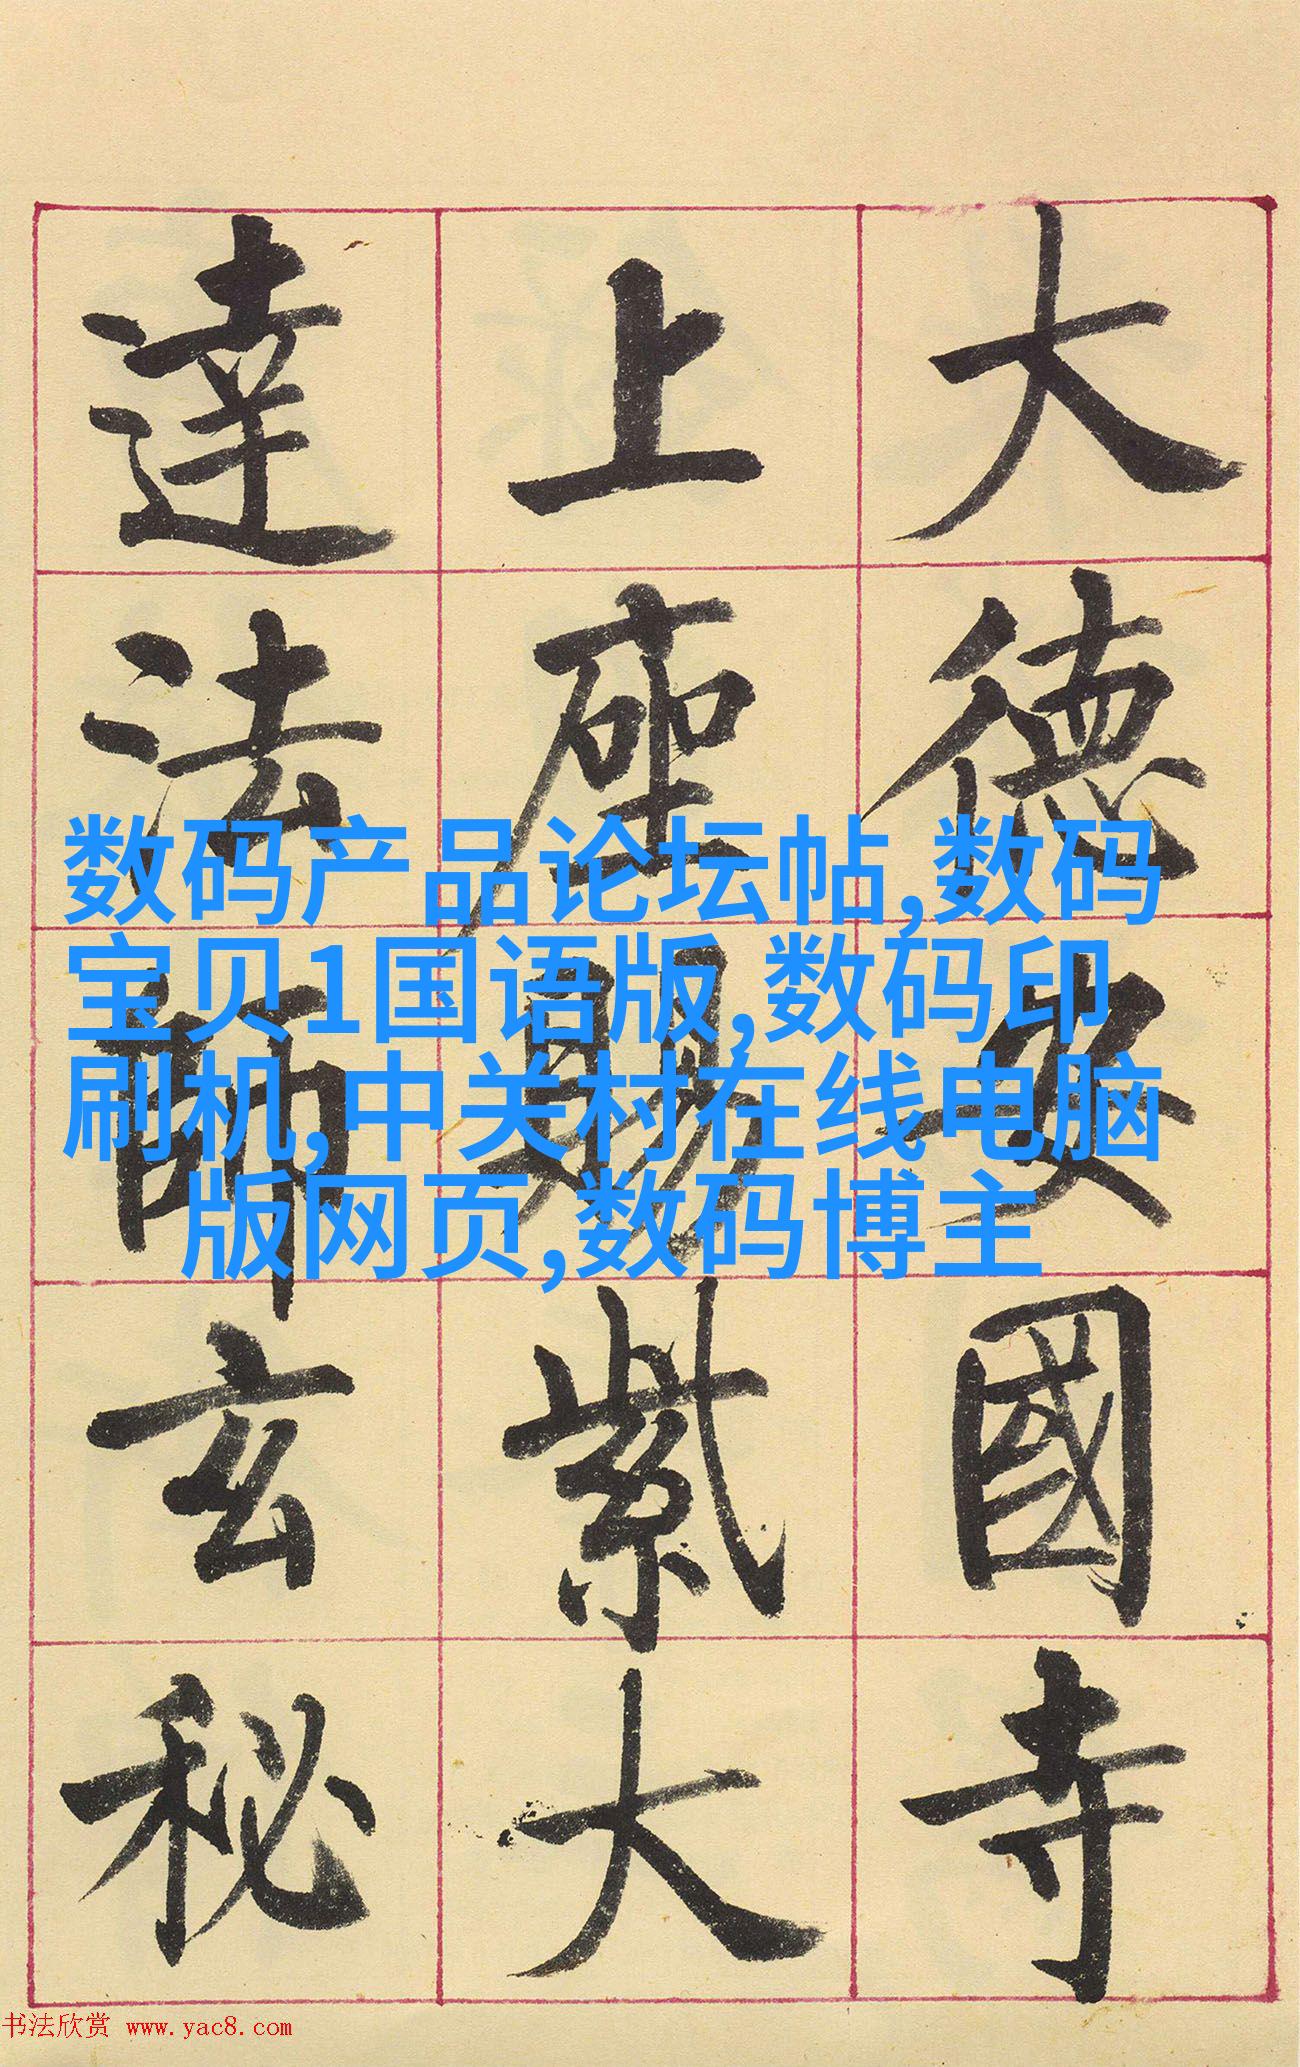 大德安國寺
上座賜紫大
達法師玄秘
数码产品论坛帖,数码
宝贝1国语版,数码印
刷机,中关村在线电脑
版网页,数码博主
书法欣赏 www.yac8.com